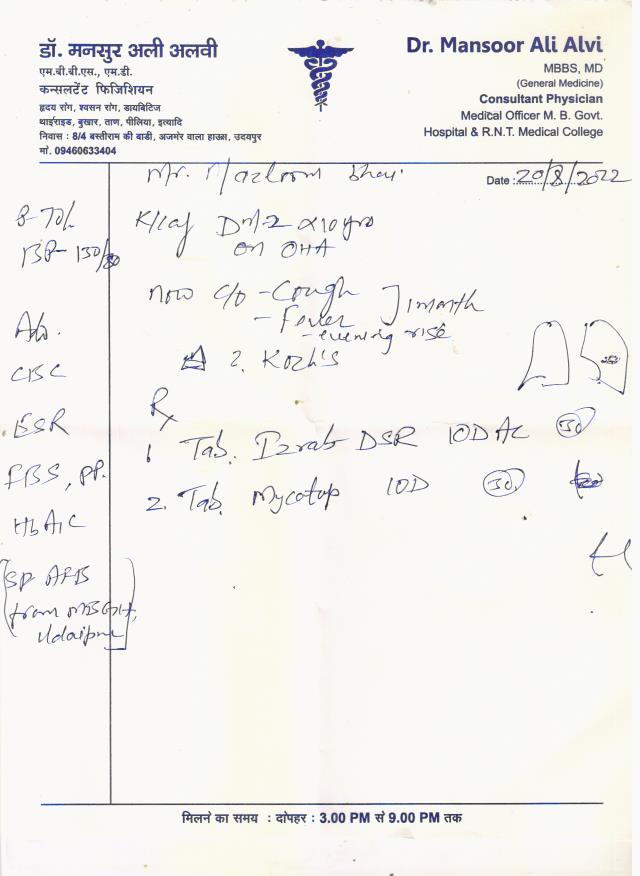 डॉ. मनसुर अली अलवी
एम.बी.बी.एस., एम.डी.
कन्सलटेंट फिजिशियन
हृदय रोग, श्वसन रोग, डायबिटिज
थाईराइड, बुखार, ताण, पीलिया, इत्यादि
निवास : 8/4 बस्तीराम की बाडी, अजमेर वाला हाऊस, उदयपुर
मो. 09460633404
Dr. Mansoor Ali Alvi
MBBS, MD
(General Medicine)
Consultant Physician
Medical Officer M. B. Govt.
Hospital & R.N.T. Medical College
Mr. Mazloom bhai
Date : 20/8/2022
K/c/o DM-2 x 10 yrs
on OHA
BP- 130/80
Now c/o - Cough
- Fever
1 month
- evening rise
Adv.
CBC
ESR
FBS, PP.
HbA1C
SP AFB
(from MBGH,
Udaipur)
Δ ? Koch's
Rx
1 Tab. Izrab DSR 1OD AC 30
2. Tab. Mycotop 1OD 30
मिलने का समय : दोपहर : 3.00 PM से 9.00 PM तक